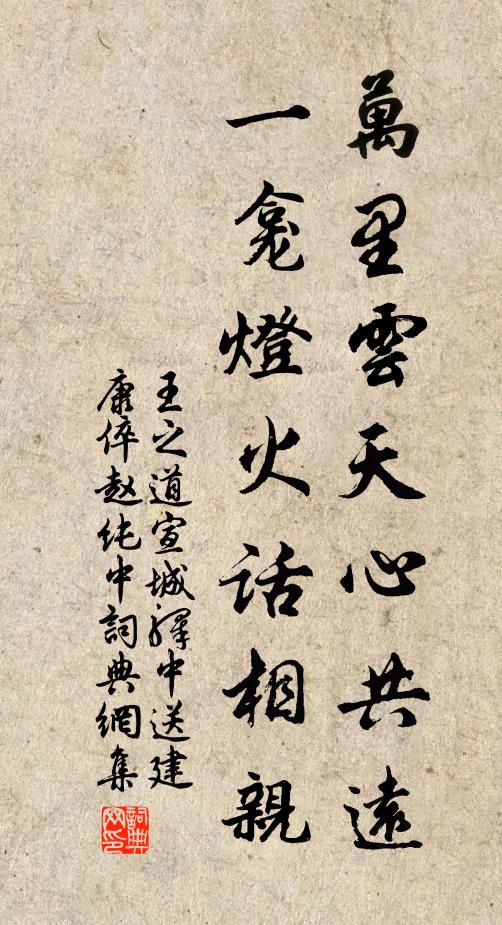 萬里雲天心共遠
一龕燈火話相親
王之道宣城驛中送建
康倅趙純中詞典網集
詞典
网印